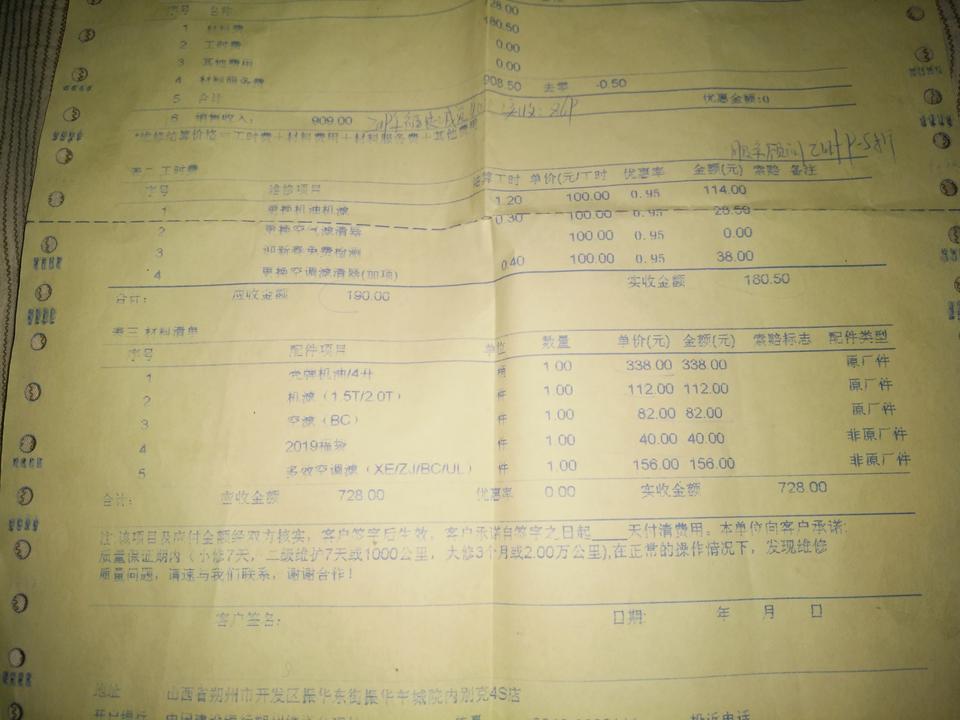 序号 名称 728.00
1 材料费 180.50
2 工时费 0.00
3 其他费用 0.00
4 材料服务费 908.50 去零 -0.50
5 合计 优惠金额:0
6 销售收入: 909.00
*维修结算价格=工时费+材料费用+材料服务费+其他费用
表二 工时费
序号 维修项目 结算工时 单价(元)/工时 优惠率 金额(元) 索赔 备注
1 更换机油机滤 1.20 100.00 0.95 114.00
2 更换空气滤清器 0.30 100.00 0.95 28.50
3 迎新春免费检测 100.00 0.95 0.00
4 更换空调滤清器(加项) 0.40 100.00 0.95 38.00
合计: 应收金额 190.00 实收金额 180.50
表三 材料清单
序号 配件项目 单位 数量 单价(元) 金额(元) 索赔标志 配件类型
1 壳牌机油/4升 1.00 338.00 338.00 原厂件
2 机滤(1.5T/2.0T) 件 1.00 112.00 112.00 原厂件
3 空滤(BC) 件 1.00 82.00 82.00 原厂件
4 2019福袋 件 1.00 40.00 40.00 非原厂件
5 多效空调滤(XE/ZJ/BC/UL) 件 1.00 156.00 156.00 非原厂件
合计: 应收金额 728.00 优惠率 0.00 实收金额 728.00
注:该项目及应付金额经双方核实,客户签字后生效,客户承诺自签字之日起____天付清费用。本单位向客户承诺:
质量保证期内(小修7天,二级维护7天或1000公里,大修3个月或2.00万公里),在正常的操作情况下,发现维修
质量问题,请速与我们联系,谢谢合作!
客户签名: 日期: 年 月 日
地址 山西省朔州市开发区振华东街振华车城院内别克4S店